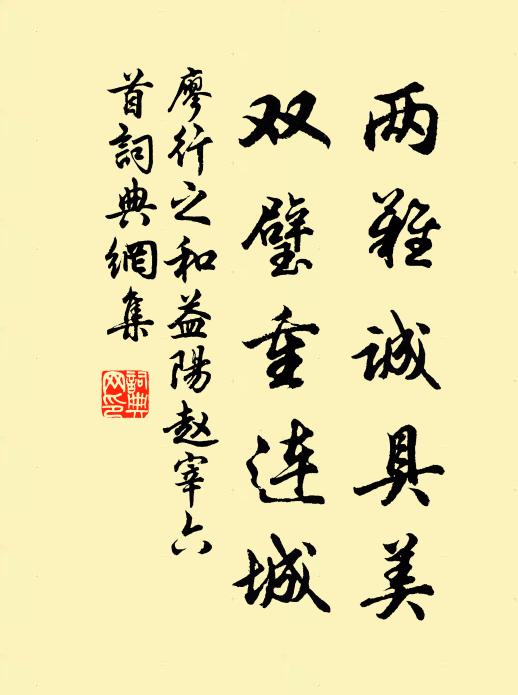 两難诚具美
双璧重連城
廖行之和益陽赵宰六
首詞典網集
詞典
网印